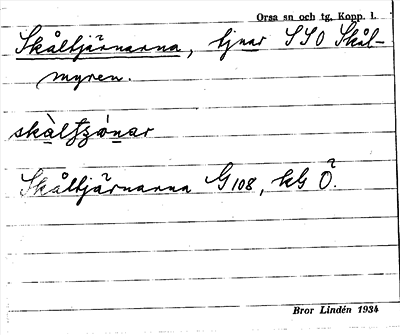 Orsa sn och tg, Kopp. l.
Skåltjärnarna, tjnar SSO Skål-
myren.
Skåltjärnarna G 108, kG Ö.
?
Bror Lindén 1934